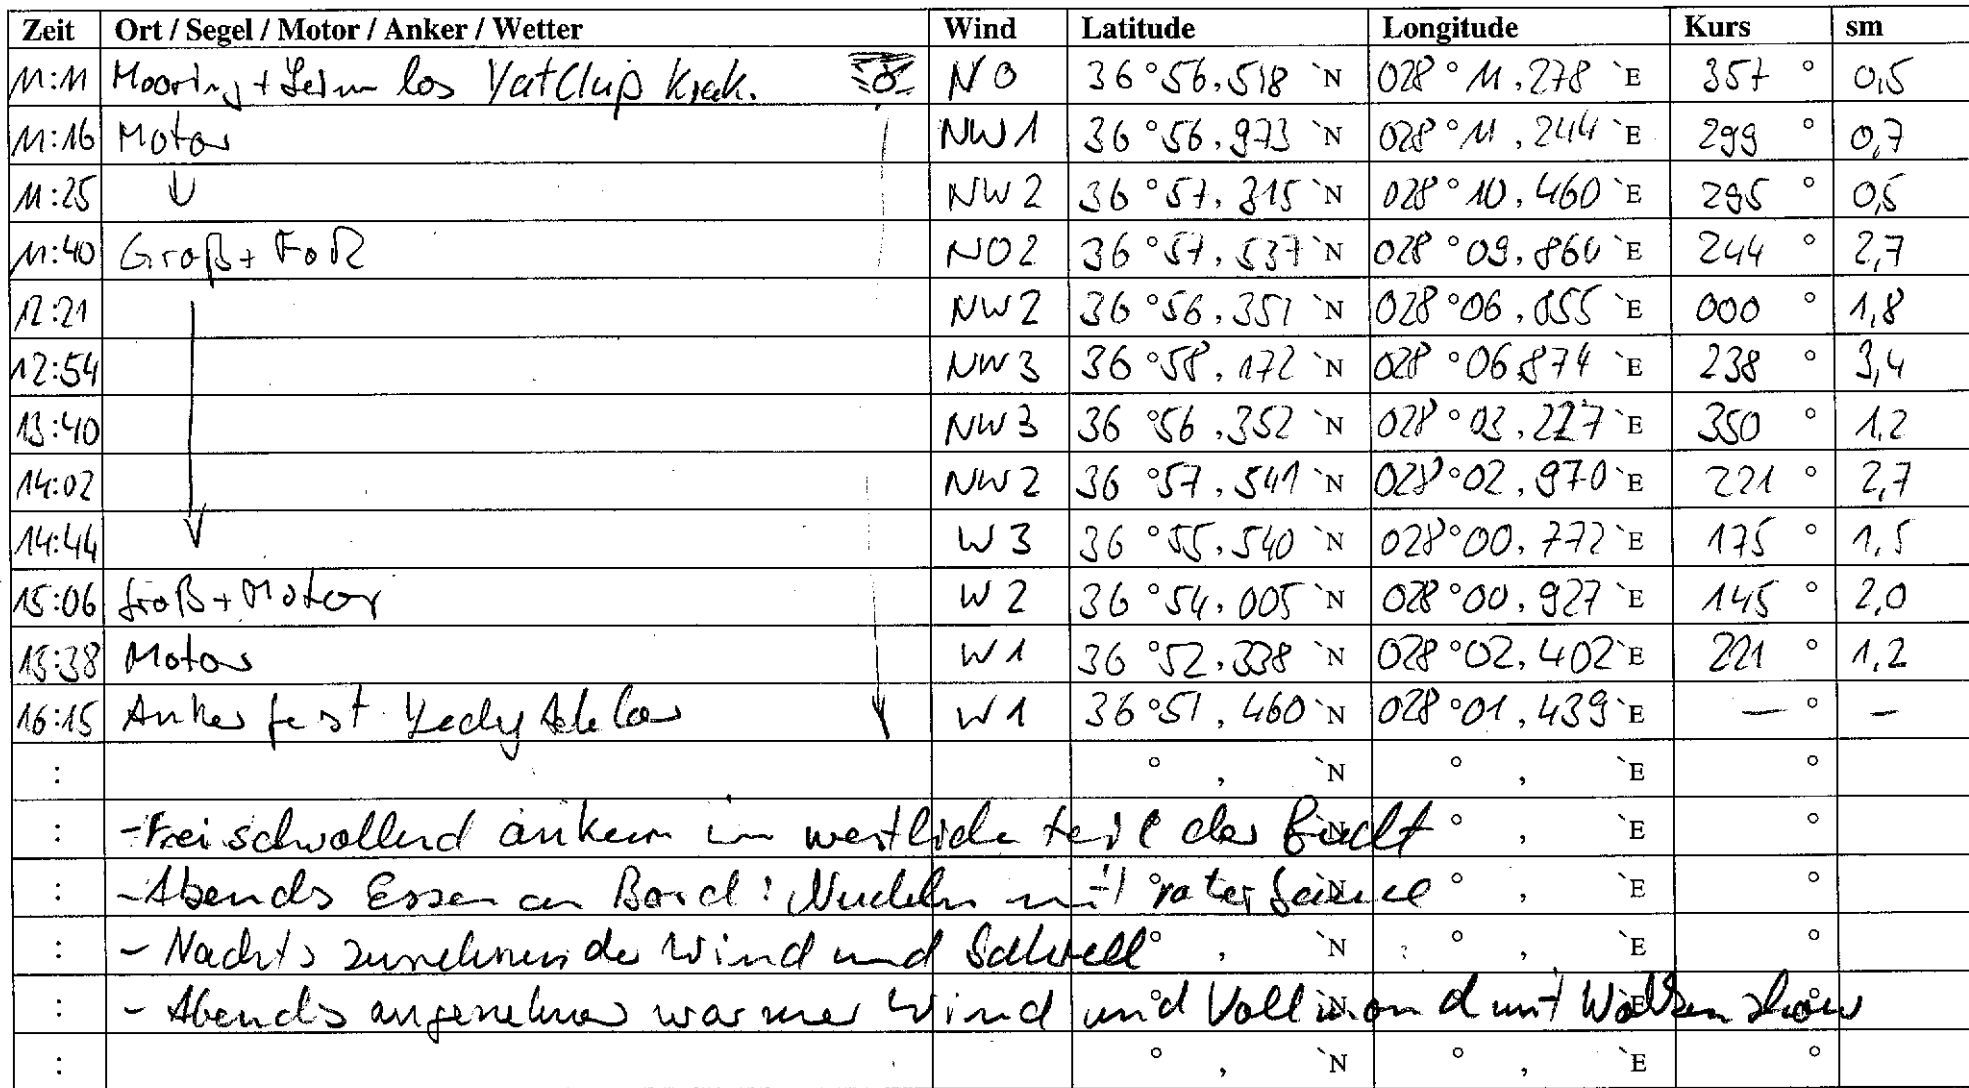 Zeit Ort / Segel / Motor / Anker / Wetter Wind Latitude Longitude Kurs sm
11:11 Mooring + los YatClup NO 36°56,518`N 028°11,278`E 357° 0,5
11:16 Motor NW 1 36°56,973`N 028°11,244`E 299° 0,7
11:25 NW 2 36°57,315`N 028°10,460`E 295° 0,5
11:40 Groß + Fock NO2 36°57,537`N 028°09,860`E 244° 2,7
12:21 NW 2 36°56,351`N 028°06,055`E 000° 1,8
12:54 NW 3 36°58,172`N 028°06 874`E 238° 3,4
13:40 NW 3 36°56,352`N 028°03,227`E 350° 1,2
14:02 NW 2 36°57,541`N 028°02,970`E 221° 2,7
14:44 W 3 36°55,540`N 028°00,772`E 175° 1,5
15:06 Groß + Motor W 2 36°54,005`N 028°00,927`E 145° 2,0
15:38 Motor W 1 36°52,338`N 028°02,402`E 221° 1,2
16:15 Anker fest W 1 36°51,460`N 028°01,439`E — ° —
: ° , `N ° , `E °
: - Frei schwollend ankern im westliche teil der Bucht ° , `E °
: - Abends Essen an Bord: Nudeln mit roter ° , `E °
: - Nachts zunehmende Wind und Schwell ° , `N ° , `E °
: - Abends angenehmer warmer Wind und Vollmond mit Wolken show
: ° , `N ° , `E °